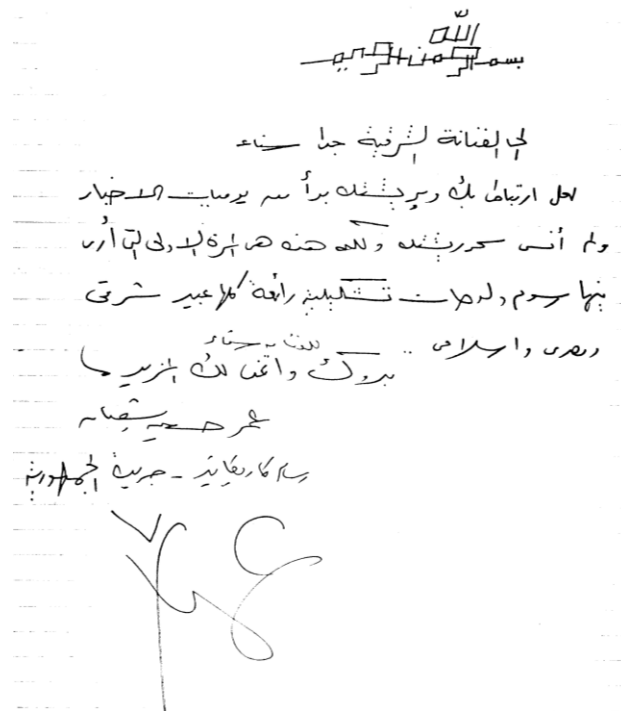 بسم الله الرحمن الرحيم
إلى الفنانة الشرقية جدا سناء
لعل ارتباطى بك وبريشتك بدأ من يوميات الاخبار
ولم أنسى سحر ريشتك ولكن هذه هى المرة الاولى التى أرى
فيها رسوم ولوحات تشكيلية رائعة كلها عبير شرقى
ومصرى واسلامى ..
للفنانة سناء
مبروك واتمنى لك المزيد
عمر
رسام كاريكاتير - جريدة الجمهورية